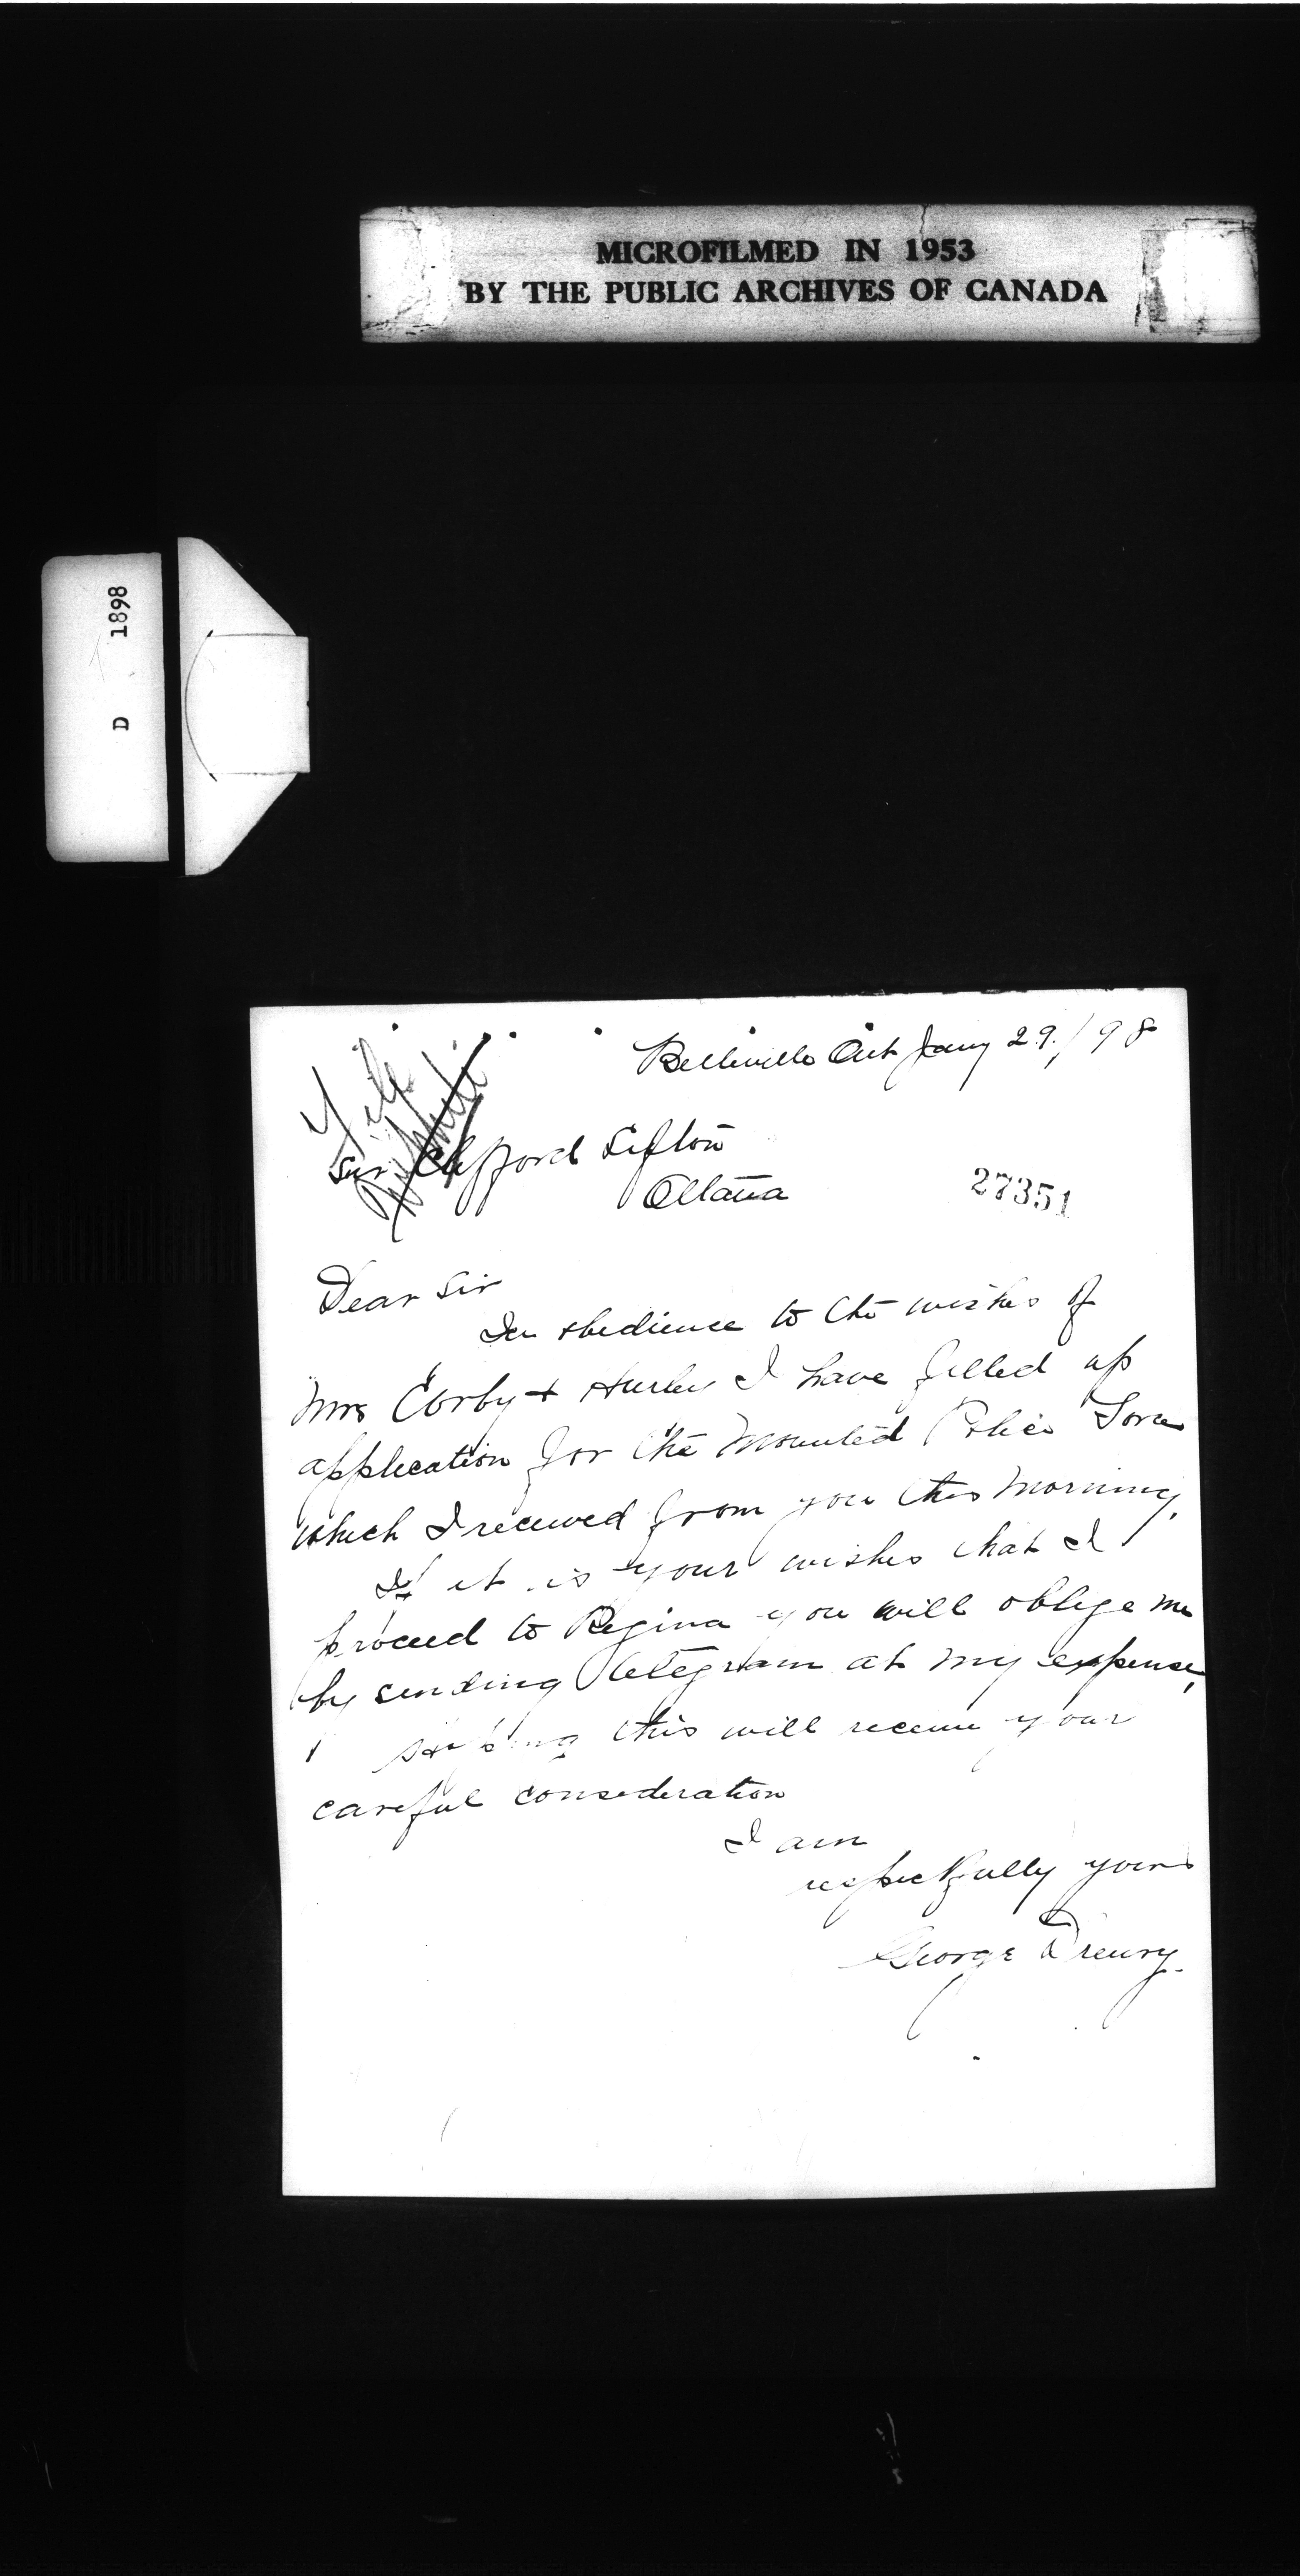 MICROFILMED IN 1953
BY THE PUBLIC ARCHIVES OF CANADA
D 1898
Belleville Ont Jany 29/98
File
Sir Clifford Sifton
Ottawa
27351
Dear Sir
In obedience to the wishes of
Mrs Corby + Hurley I have filled up
application for the Mounted Police Force
which I received from you this morning.
If it is your wishes that I
proceed to Regina you will oblige me
by sending telegram at my expense,
this will receive your
careful consideration
I am
respectfully yours
George Drewry.